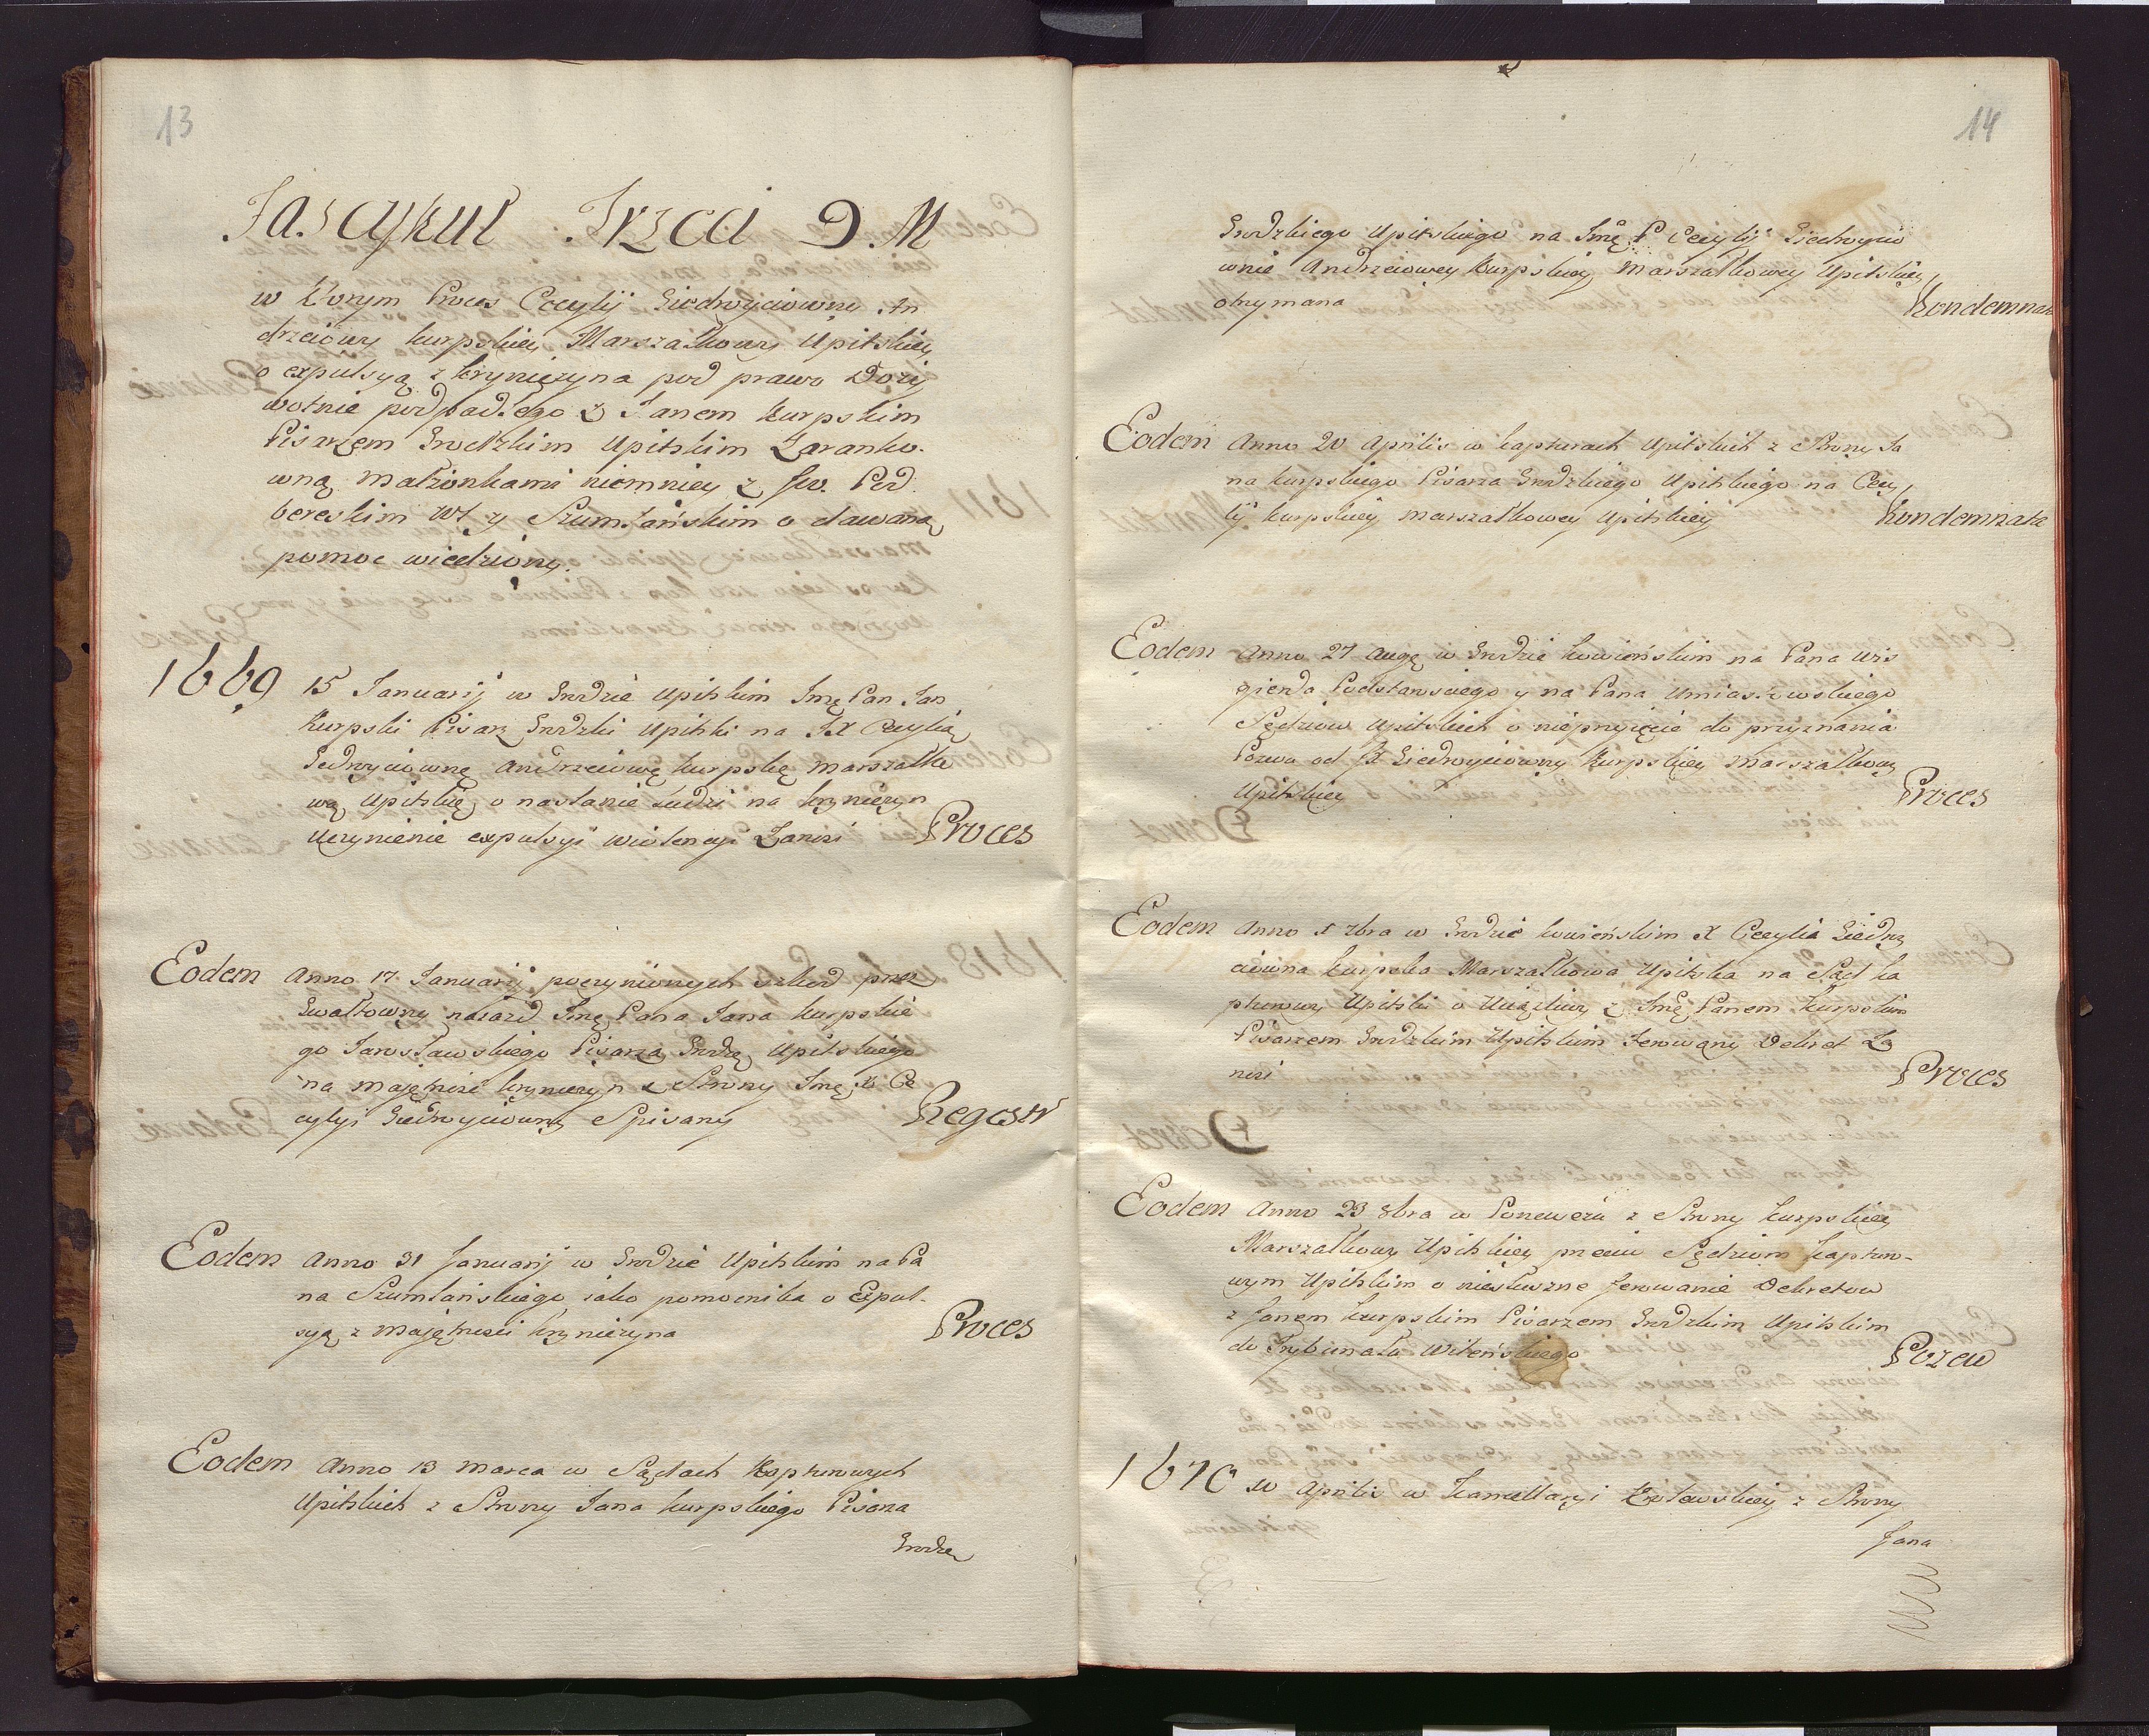 13
Fascykuł Trzeci D. M
w którym Proces Cecylij Giedroyciowny An
drzeiowey Kurpskiey Marszałkowey Upitskiey
o expulsyą z Kryniczyna pod prawo Doży
wotnie podpadłego z Janem Kurpskim
Pisarzem Grodzkim Upitskim Zaranko-
wną małżonkami niemniey z Jw. Pod
bereskim y Szumlańskim o dawaną
pomoc wiedziony.
1669 15 Januarij w Grodzie Upitskim Imę Pan Jan
Kurpski Pisarz Grodzki Upitski na Cecylią
Gedroyciownę Andrzeiowę Kurpskę Marszałko
wą Upitską o nasłanie Ludzi na Kryniczyn
Uczynienie expulsyi wiolencyi Zaniosł Proces
Eodem Anno 17 Januarij poczynionych szkod przez
Gwałtowny najazd Imę Pana Jana Kurpskie
go Jarosławskiego Pisarza Grodzę Upitskiego
na majętność Kryniczyn z Strony Imę P. Ce
cylyi Giedroyciowny Spisany Regestr
Eodem Anno 31 Januarij w Grodzie Upitskim na Pa
na Szumlańskiego iako pomocnika o Expul-
syą z Majętności Kryniczyna Proces
Eodem Anno 13 Marca w Sądach Kapturowych
Upitskich z Strony Jana Kurpskiego Pisarza
Grodzę
14
Grodzkiego Upitskiego na Imę P Cecylij Giedroycio
wnie Andrzeiowey Kurpskiey Marszałkowey Upitskiey
otrzymana Kondemnata
Eodem Anno 20 Aprilis w Kapturach Upitskich z Strony Ja
na Kurpskiego Pisarza Grodzkiego Upitskiego na Cecy
lij Kurpskiey Marszałkowey Upitskiey Kondemnata
Eodem Anno 27 Augę w Grodzie Kowieńskim na Pana Wis
gierda Podstarosciego y na Pana Umiastowskiego
Sędziow Upitskich o nieprzyięcie do przyznania
Pozwu od Giedroyciowny Kurpskiey Marszałkowey
Upitskiey Proces
Eodem Anno 1 7bra w Grodzie Kowieńskim Cecylia Giedroy
ciowna Kurpska Marszałkowa Upitska na Sąd Ka
pturowy Upitski o Uciążliwy z Imę Panem Kurpskim
Pisarzem Grodzkim Upitskim Ferowany Dekret Za
niosł Proces
Eodem Anno 23 8bra w Poniewiżu z Strony Kurpskiey
Marszałkowey Upitskiey przeciw Sędziom Kapturo-
wym Upitskim o niesłuszne ferowanie Dekretow
z Janem Kurpskim Pisarzem Grodzkim Upitskim
do Trybunału Wileńskiego Pozew
1670 Aprilis w Kancellaryi z Strony
Jana